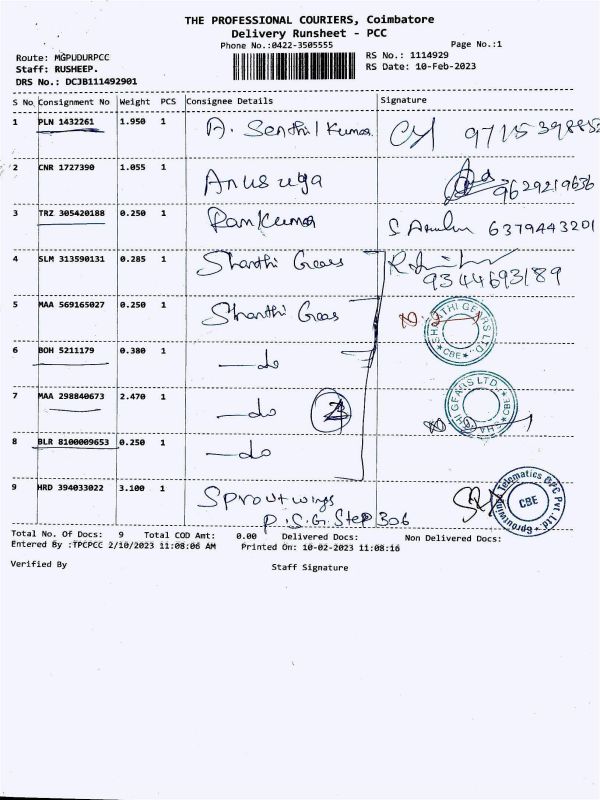 THE PROFESSIONAL COURIERS, Coimbatore
Delivery Runsheet - PCC
Phone No.:0422-3505555
Page No.:1
Route: MGPUDURPCC
Staff: RUSHEEP.
DRS No.: DCJB111492901
RS No.: 1114929
RS Date: 10-Feb-2023
S No. Consignment No Weight PCS Consignee Details Signature
1 PLN 1432261 1.950 1 A. Senthil Kumar
2 CNR 1727390 1.055 1 Anusuya 9629219636
3 TRZ 305420188 0.250 1 Ramkumar 6379443201
4 SLM 313590131 0.285 1 Shanthi Gears 9344693189
5 MAA 569165027 0.250 1 Shanthi Gears
SHANTHI GEARS LTD., CBE
6 BOH 5211179 0.380 1 —do
7 MAA 298840673 2.470 1 —do
8 BLR 8100009653 0.250 1 —do
9 HRD 394033022 3.100 1 Sproutwings
P.S.G. Step 306
Sproutwings Telematics OPC Pvt. Ltd. CBE
Total No. Of Docs: 9 Total COD Amt: 0.00 Delivered Docs: Non Delivered Docs:
Entered By :TPCPCC 2/10/2023 11:08:06 AM Printed On: 10-02-2023 11:08:16
Verified By
Staff Signature